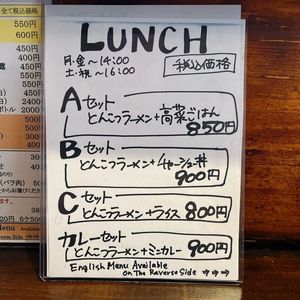 全て税込価格
550円
600円
450円
400円
450円
LUNCH
月-金〜14:00
土・祝〜16:00
税込価格
Aセット
とんこつラーメン+高菜ごはん
850円
Bセット
とんこつラーメン+チャーシュー丼
900円
Cセット
とんこつラーメン+ライス 800円
カレーセット
とんこつラーメン+ミニカレー 900円
English Menu Available
On The Reverse Side →→→